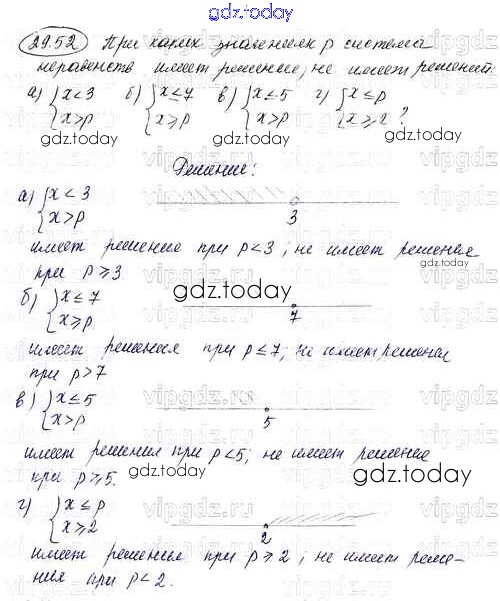 gdz.today
29.52 При каких значениях p система
неравенств имеет решение, не имеет решений:
а) { x<3 б) { x≤7 в) { x≤5 г) { x≤p
x>p x≥p x>p x≥2 ?
gdz.today gdz.today
Решение:
а) { x<3
x>p
3
имеет решение при p<3; не имеет решения
при p≥3
gdz.today
б) { x≤7
x≥p
gdz.today
7
имеет решения при p≤7; не имеет решения
при p>7
в) { x≤5
x>p
5
имеет решения при p<5; не имеет решения
при p≥5.
gdz.today
gdz.today
г) { x≤p
x≥2
2
имеет решение при p≥2; не имеет реше-
ния при p<2.
gdz.today